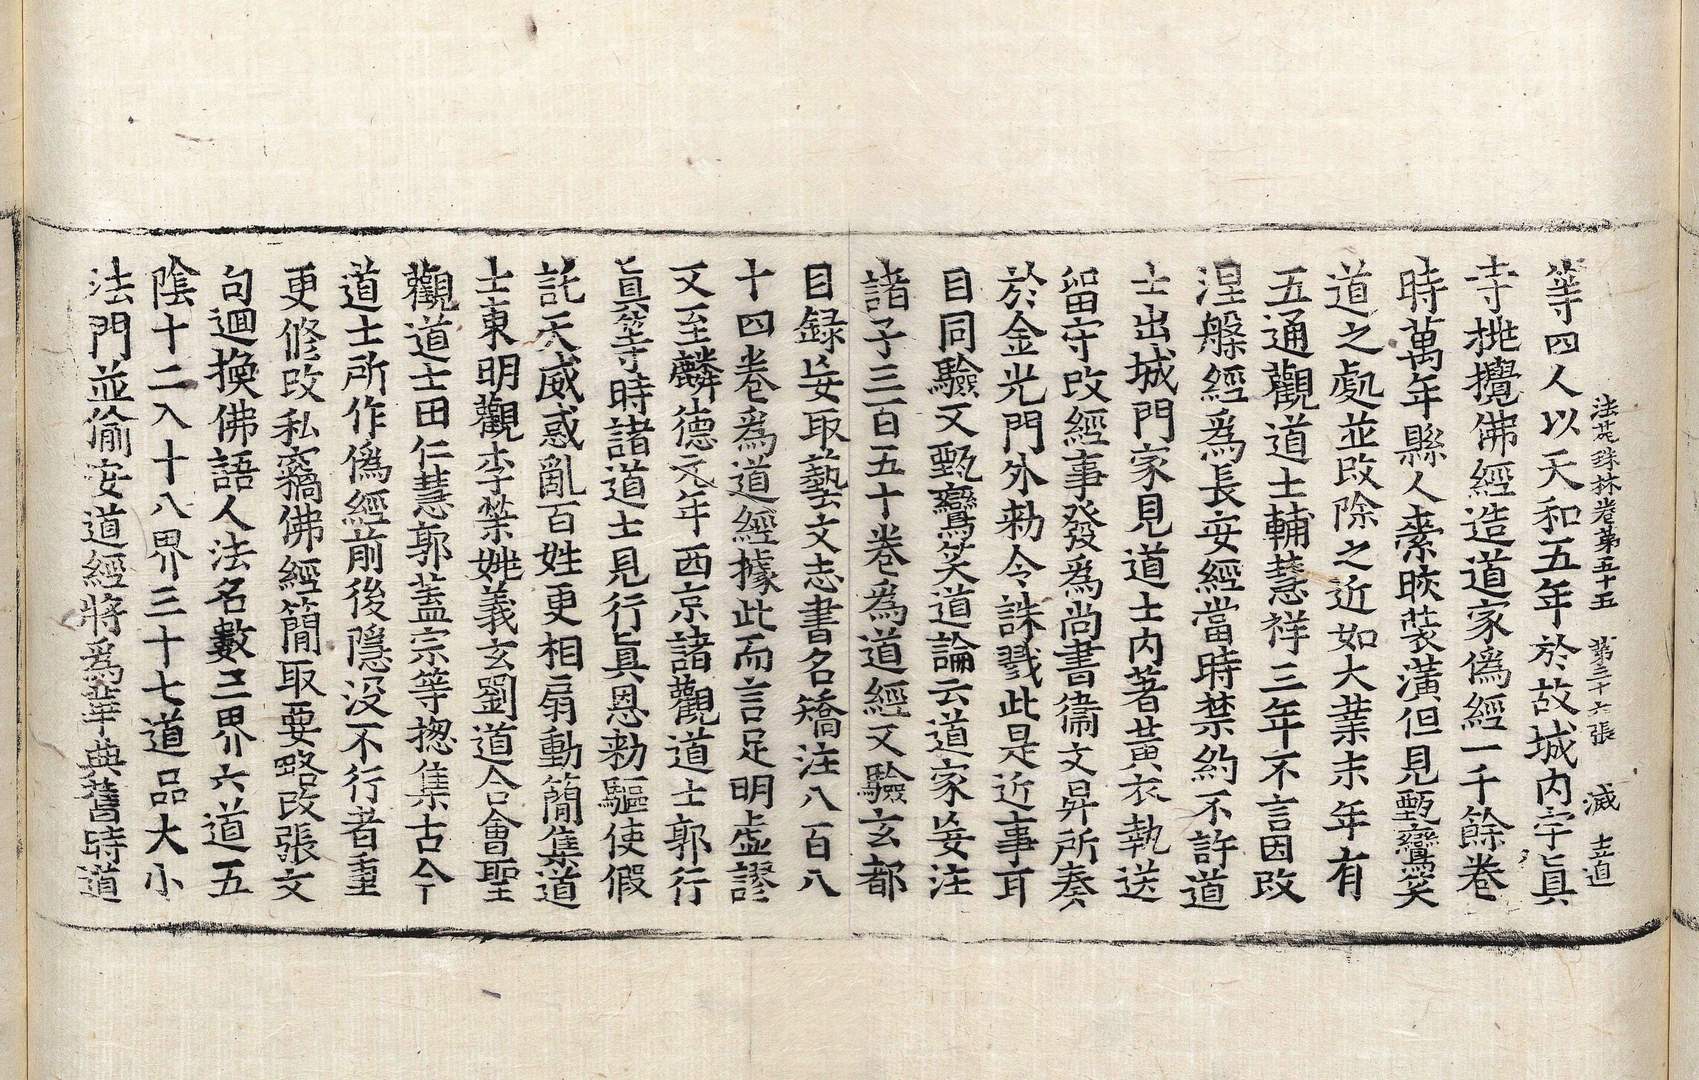 法苑珠林卷第五十五 第三十六張 滅 吉迫
等四人以天和五年於故城內守眞
寺挑攪佛經造道家僞經一千餘卷
時萬年縣人索皎裝潢但見甄鸞笑
道之處並改除之近如大業末年有
五通觀道士輔慧祥三年不言因改
涅槃經爲長安經當時禁約不許道
士出城門家見道士內著黃衣執送
留守改經事發爲尚書衞文昇所奏
於金光門外勑令誅戮此是近事耳
目同驗又甄鸞笑道論云道家妄注
諸子三百五十卷爲道經又驗玄都
目録妄取藝文志書名矯注八百八
十四卷爲道經據此而言足明虛謬
又至麟德元年西京諸觀道士郭行
眞等時諸道士見行眞恩勑驅使假
託天威惑亂百姓更相扇動簡集道
士東明觀李榮姚義玄劉道合會聖
觀道士田仁慧郭蓋宗等揔集古今
道士所作僞經前後隱沒不行者重
更修改私竊佛經簡取要略改張文
句迴換佛語人法名數三界六道五
陰十二入十八界三十七道品大小
法門並偷安道經將爲華典舊時道